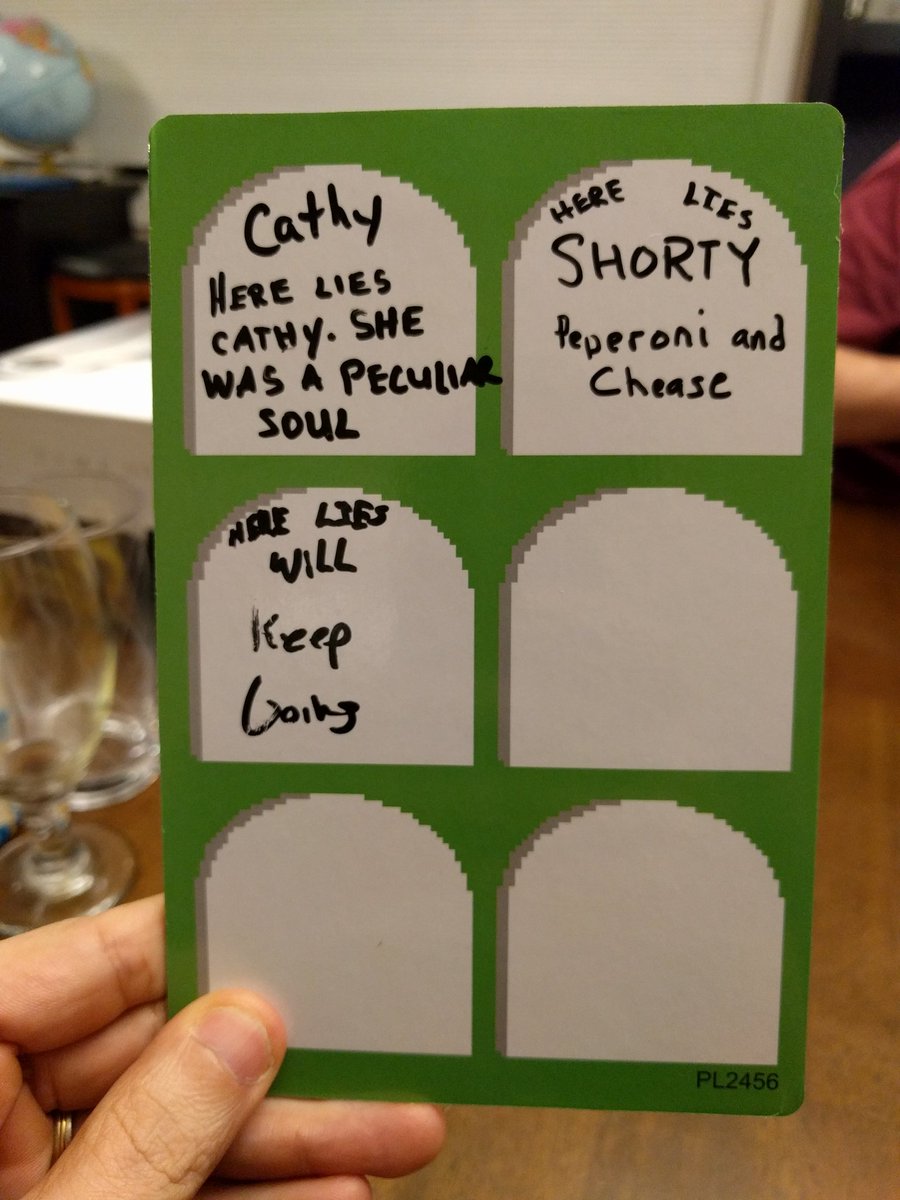 Cathy
HERE LIES
CATHY. SHE
WAS A PECULIAR
SOUL
HERE LIES
SHORTY
Peperoni and
Chease
HERE LIES
WILL
Keep
Going
PL2456